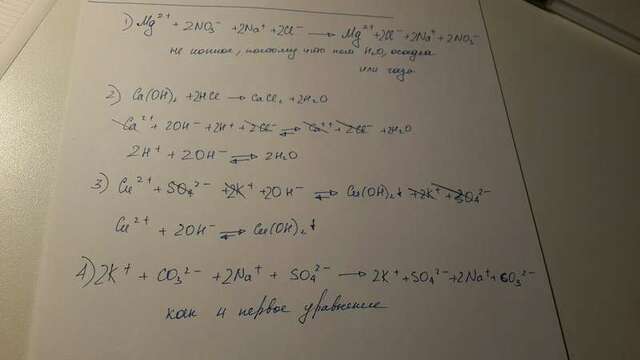 1) Mg²⁺ + 2NO₃⁻ + 2Na⁺ + 2Cl⁻ ⟶ Mg²⁺ + 2Cl⁻ + 2Na⁺ + 2NO₃⁻
не ионное, потому что нет H₂O, осадка
или газа
2) Ca(OH)₂ + 2HCl → CaCl₂ + 2H₂O
Ca²⁺ + 2OH⁻ + 2H⁺ + 2Cl⁻ ⇄ Ca²⁺ + 2Cl⁻ + 2H₂O
2H⁺ + 2OH⁻ ⇄ 2H₂O
3) Cu²⁺ + SO₄²⁻ + 2K⁺ + 2OH⁻ ⇄ Cu(OH)₂↓ + 2K⁺ + SO₄²⁻
Cu²⁺ + 2OH⁻ ⇄ Cu(OH)₂↓
4) 2K⁺ + CO₃²⁻ + 2Na⁺ + SO₄²⁻ ⟶ 2K⁺ + SO₄²⁻ + 2Na⁺ + CO₃²⁻
как и первое уравнение